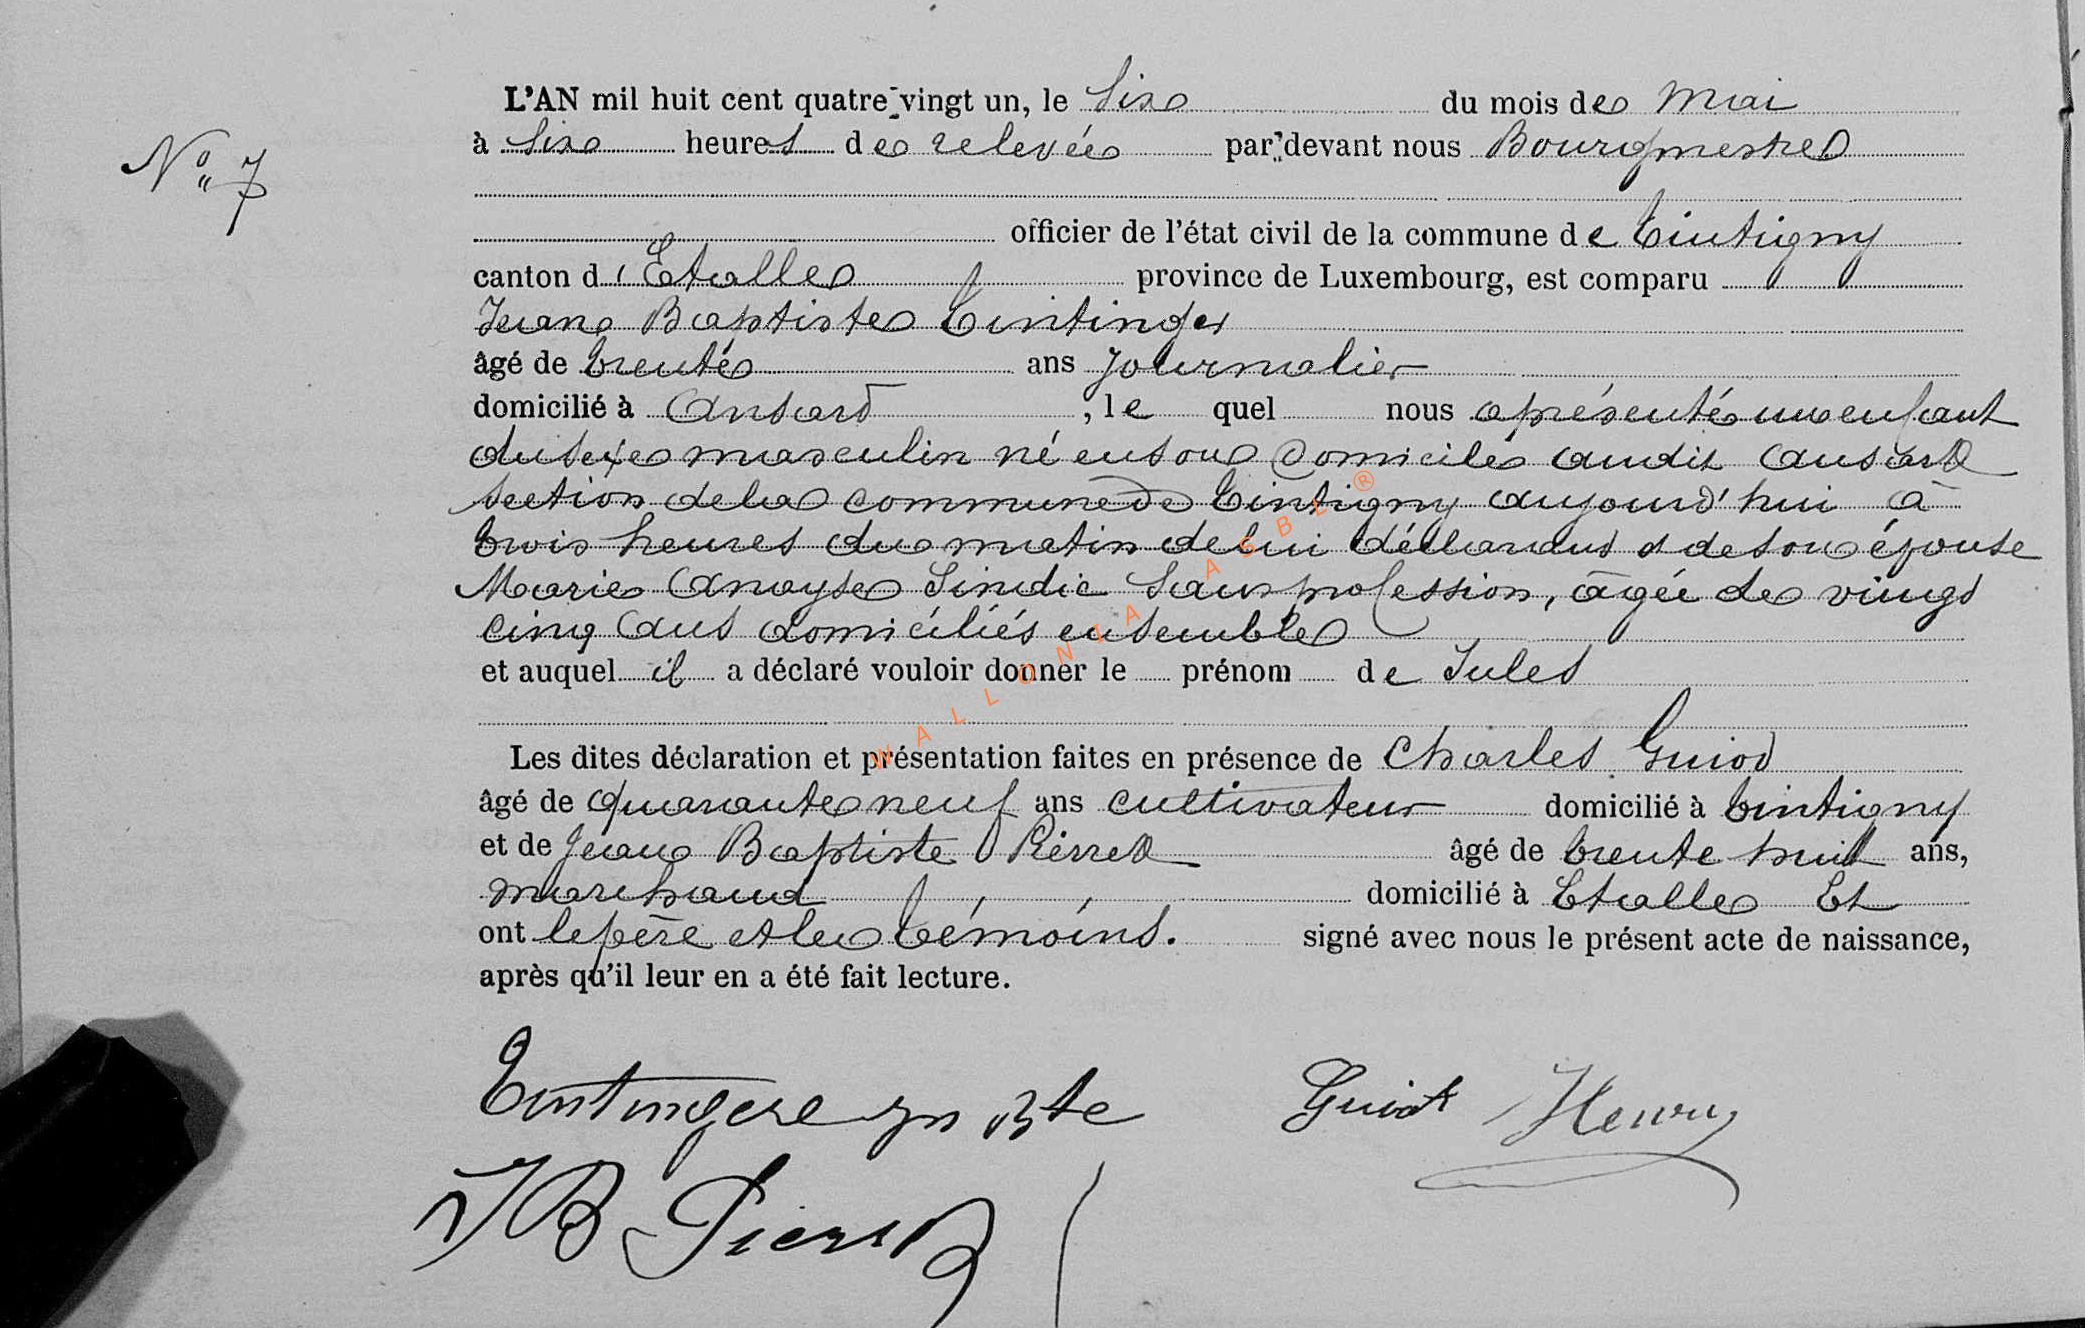 L'AN mil huit cent quatre-vingt un, le Six du mois de Mai
N° 7
à Six heures de relevée par-devant nous Bourgmestre
officier de l'état civil de la commune de Tintigny
canton d'Etalle province de Luxembourg, est comparu
Jean Baptiste Tintinger
âgé de trente ans Journalier
domicilié à Ansart, le quel nous a présenté un enfant
du sexe masculin né en son domicile audit Ansart
section de la commune de Tintigny aujourd'hui à
trois heures du matin de lui déclarant et de son épouse
Marie Sindic Sans profession, âgée de vingt
cinq ans domiciliés ensemble
et auquel il a déclaré vouloir donner le prénom de Jules
Les dites déclaration et présentation faites en présence de Charles Guiot
âgé de quarante neuf ans cultivateur domicilié à tintigny
et de Jean Baptiste Pierret âgé de trente huit ans,
marchand domicilié à Etalle Et
ont le père et les témoins. signé avec nous le présent acte de naissance,
après qu'il leur en a été fait lecture.
Guiot Henry
JB Pierret
WALLONIA ASBL ®